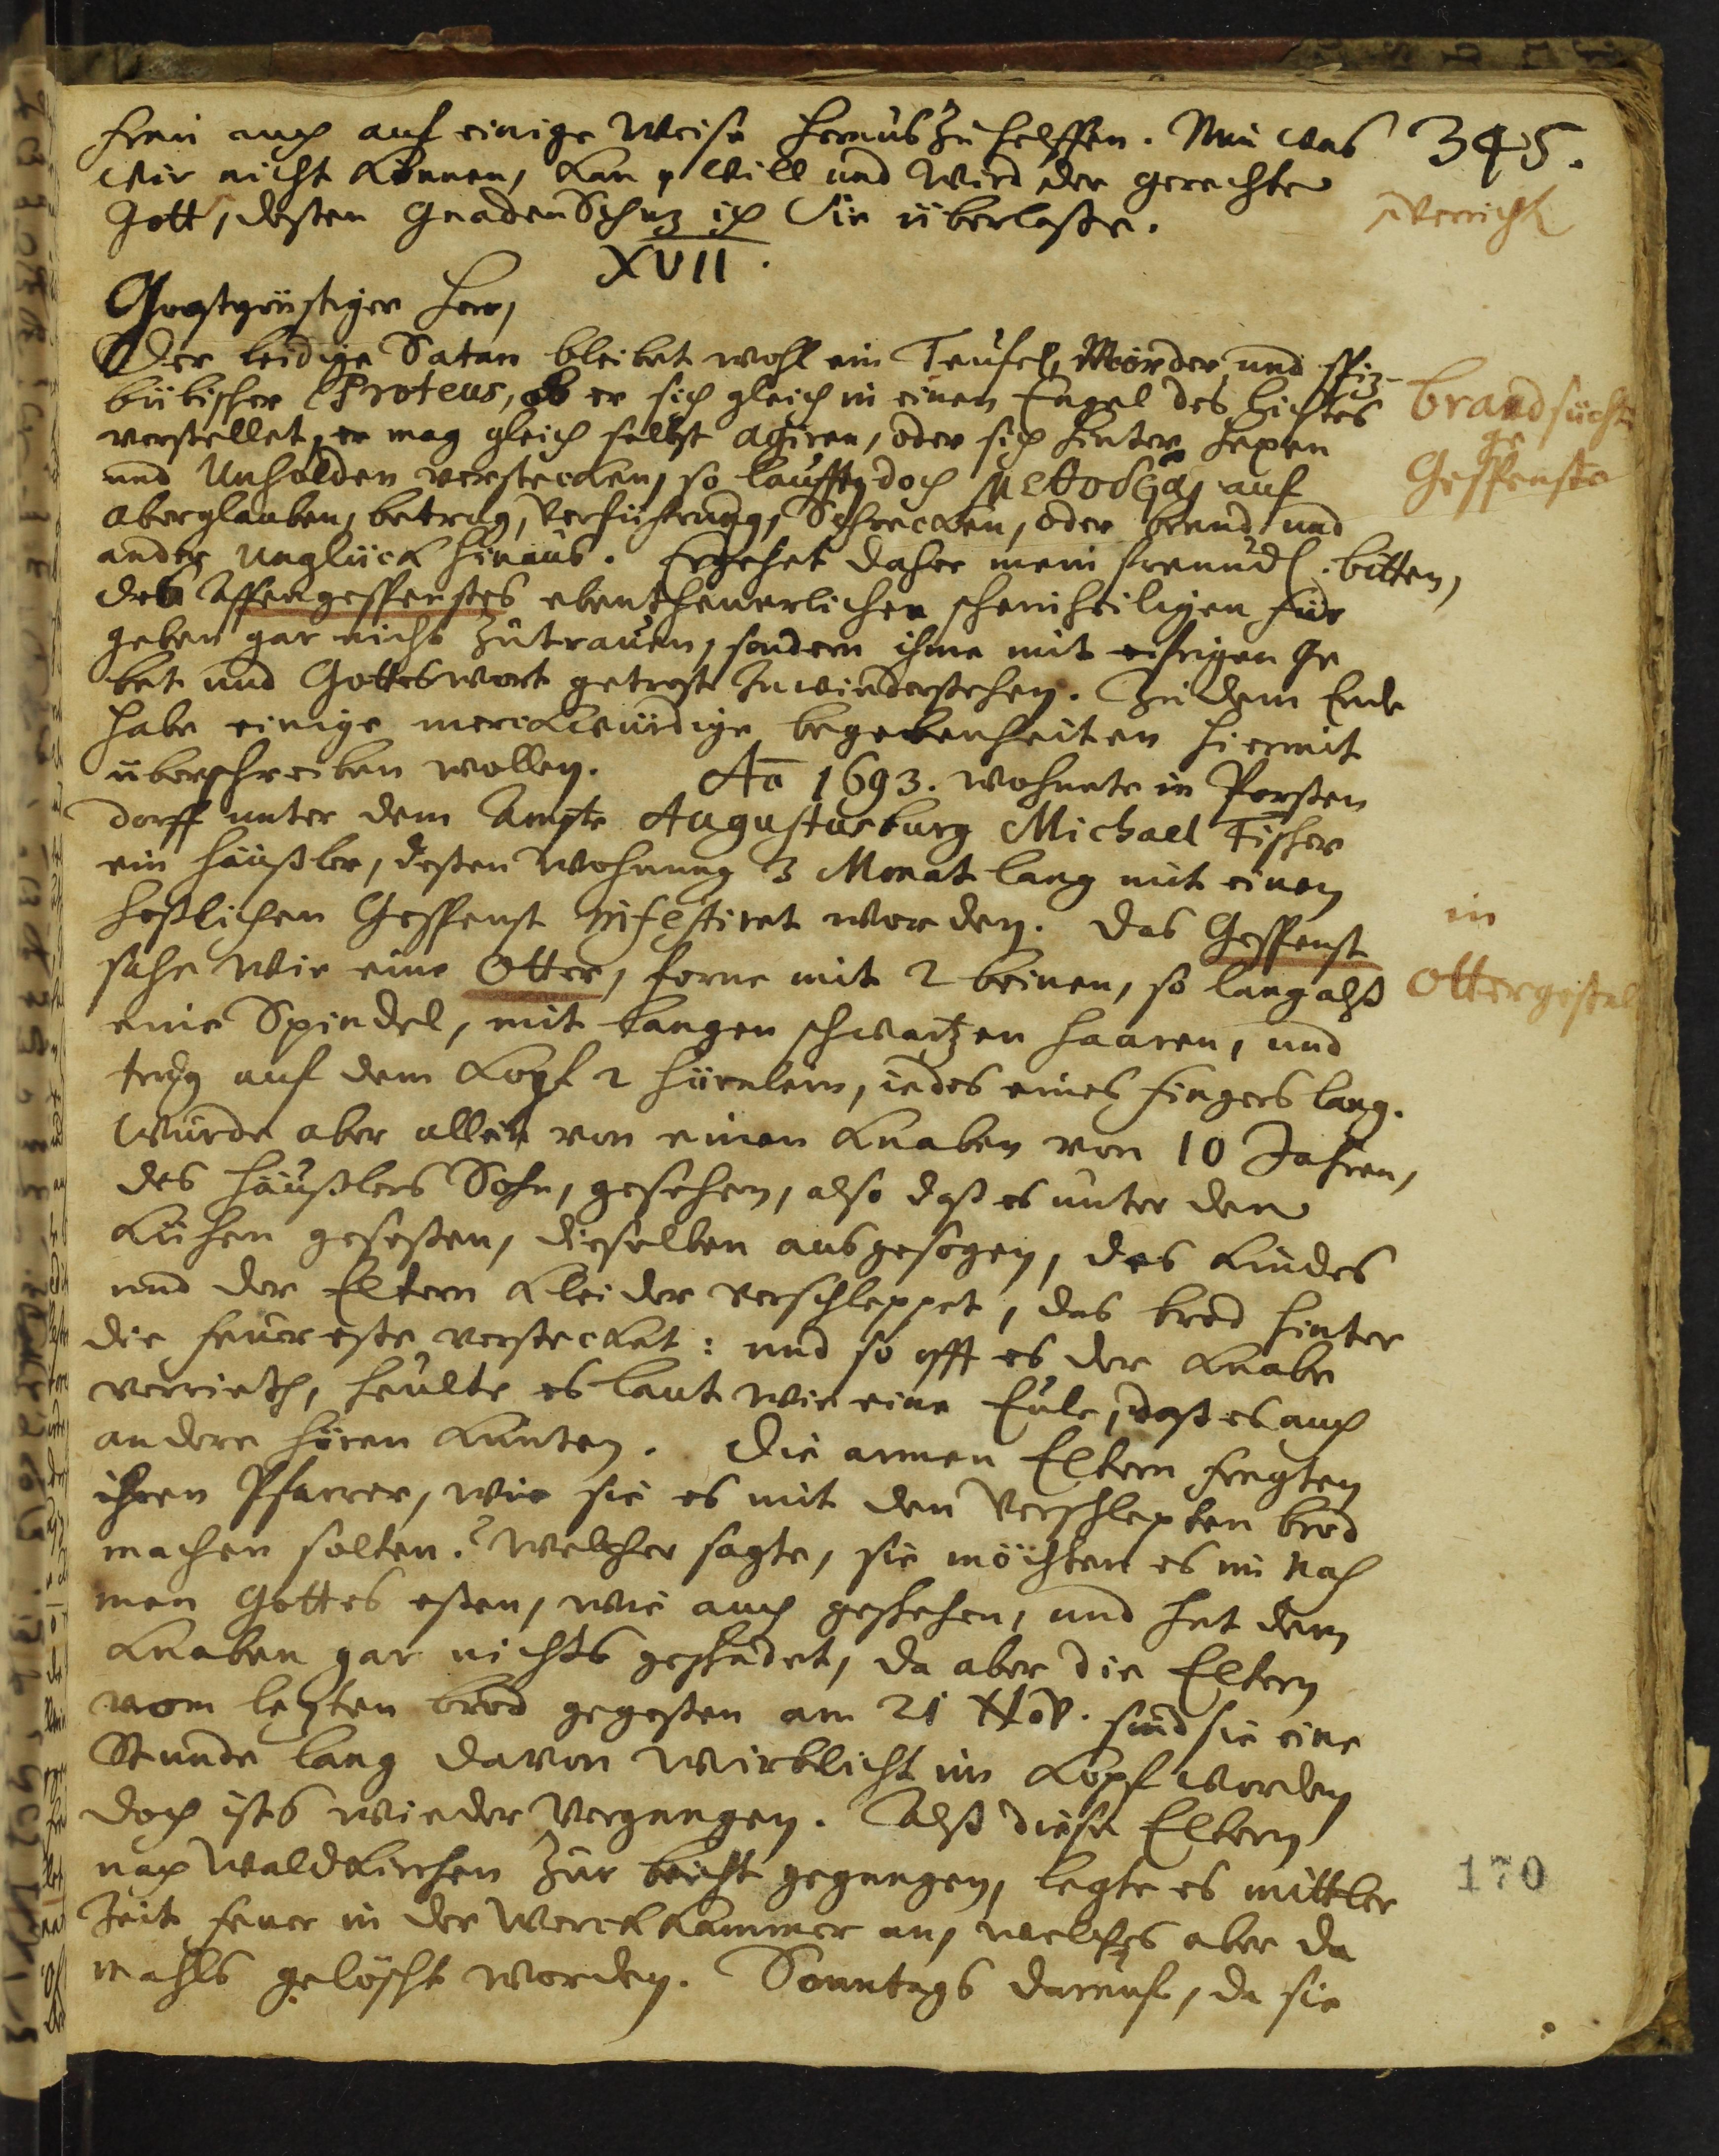 frei auch auf einige Weise heraus zu helffen. Nun was 345.
wir nicht können, kan, will und wird der gerechte
Gott, deßen Gnaden Schuz ich Sie überlaße.
Verricht
XVII.
Großgünstiger Herr,
Der leidige Satan bleibet wohl ein Teufel, Mörder, und spiz-
bübischer Proteus, ob er sich gleich in einen Engel des Lichtes
verstellet, er mag gleich selbst agiren, oder sich hinter Hexen
und Unholden verstecken, so lauffen doch μεθοδεῖα, auf
aberglauben, betrug, Verführung, Schrecken, oder brand und
ander Unglück hinaus. Ergehet daher mein freundl. bitten,
des Affengespenstes ebentheuerlichen scheinheiligen für
geben gar nicht zutrauen, sondern ihme mit eifrigen Ge
bet und Gottes wort getrost zu wiederstehen. Zu dem Ende
habe einige merckwürdige begebenheiten hiermit
überschreiben wollen. Aō 1693. wohnete in Porsten
dorff unter dem Ampte Augustusburg Michael Fischer
ein häußler, deßen Wohnung 3 Monat lang mit einen
heßlichen Gespenst infestiret worden. Das Gespenst
sahe wie eine Otter, forne mit 2 beinen, so lang alß
eine Spindel, mit langen schwartzen haaren, und
trug auf dem Kopf 2 hürnlein, iedes eines fingers lang.
Wurde aber allein von einen Knaben von 10 Jahren,
des häußlers Sohn, gesehen, also daß es unter den
Kühen geseßen, dieselben ausgesogen, des Kindes
und der Eltern Kleider verschleppet, das brod hinter
die feuer este verstecket: und so offt es der Knabe
verrieth, heulte es laut wie eine Eule, daß es auch
andere hören kunten. Die armen Eltern fragten
ihren Pfarrer, wie sie es mit den Verschlepten brod
machen solten? Welcher sagte, sie möchten es im Nah
men Gottes eßen, wie auch geschehen, und hat dem
Knaben gar nichts geschadet, da aber die Eltern
vom lezten brod gegeßen am 21 Nov. sind sie eine
Stunde lang davon wirblicht im Kopf worden
doch ists wieder Vergangen. Alß diese Eltern
nach Waldkirchen zur beicht gegangen, legte es mittler
Zeit feuer in der Werckkammer an, welches aber da
mahls gelöscht worden. Sonntags darauf, da sie
brandsüchti
ge
Gespenste
in
Ottergestalt
170